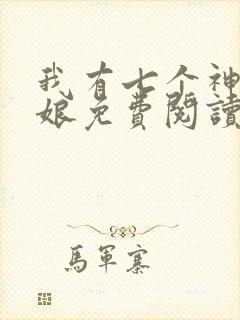 我有七个神
娘免费閱讀
馬軍寨